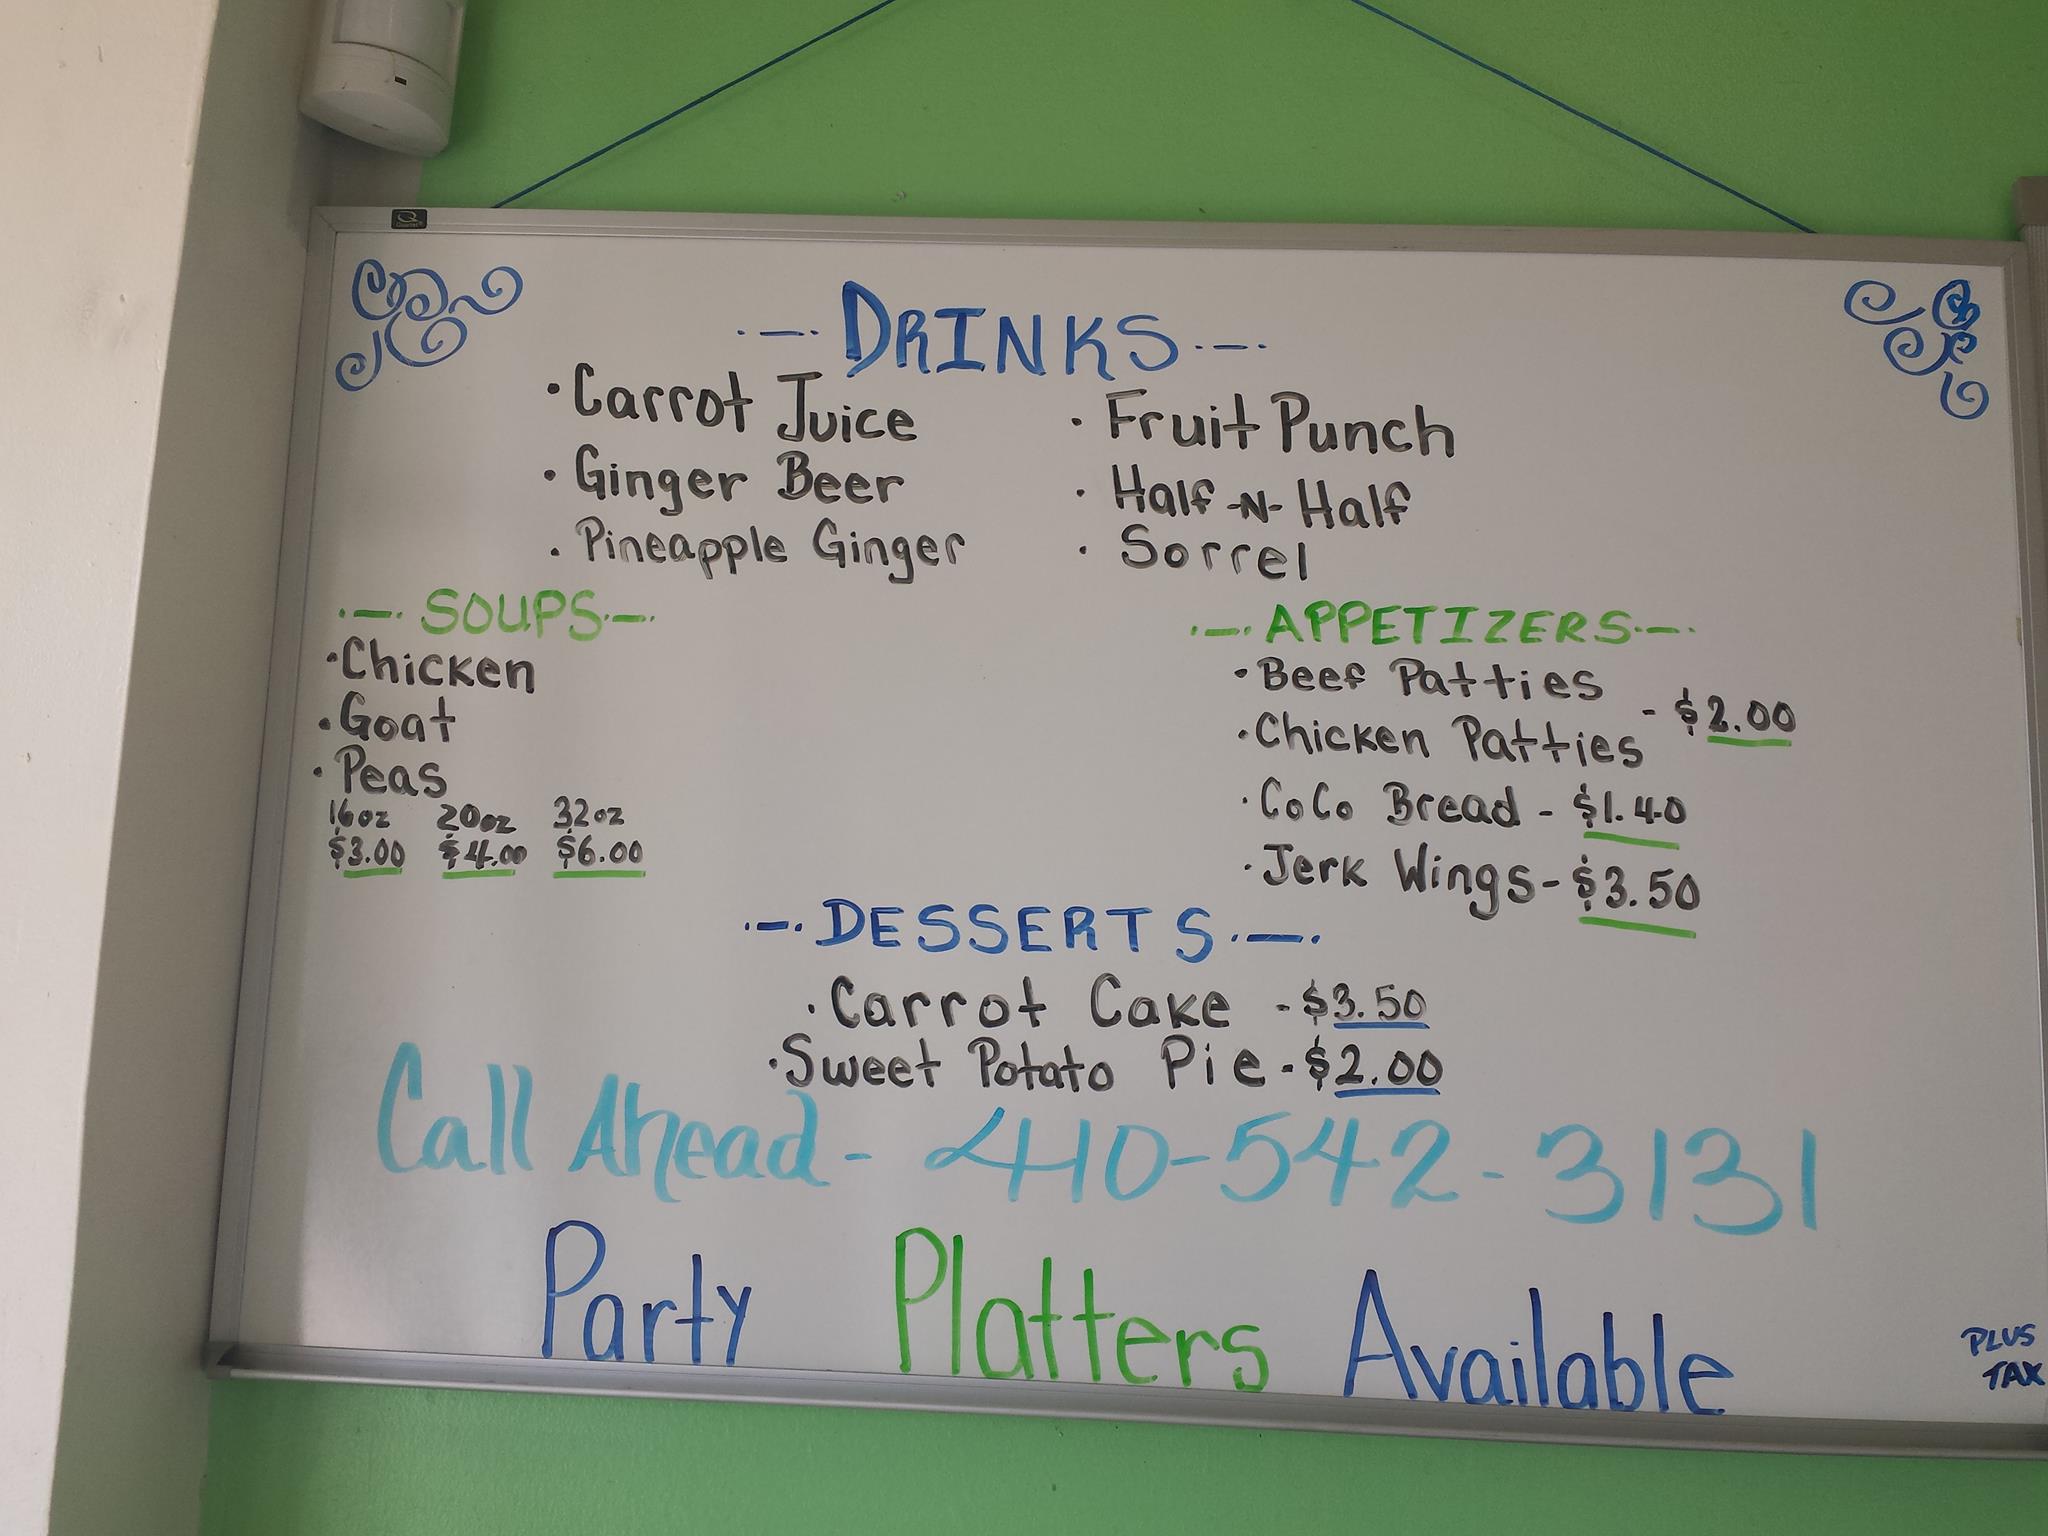 DRINKS
· Carrot Juice
· Ginger Beer
· Pineapple Ginger
· Fruit Punch
· Half-N-Half
· Sorrel
SOUPS
· Chicken
· Goat
· Peas
16oz 20oz 32oz
$3.00 $4.00 $6.00
APPETIZERS
· Beef Patties
· Chicken Patties - $2.00
· CoCo Bread - $1.40
· Jerk Wings - $3.50
DESSERTS
· Carrot Cake - $3.50
· Sweet Potato Pie - $2.00
Call Ahead - 410-542-3131
Party Platters Available
PLUS
TAX